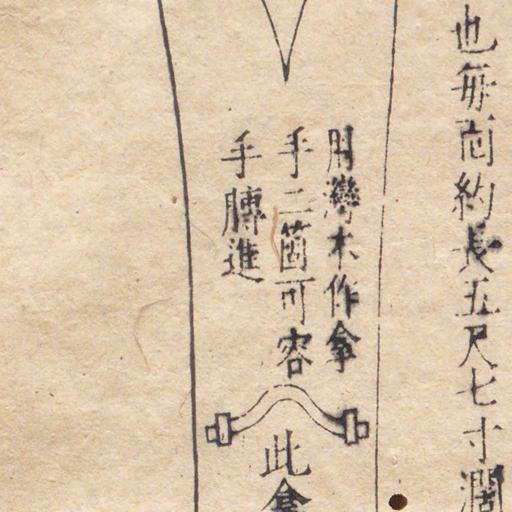 也每面約長五尺七寸濶
用灣木作拿
手二箇可容
手膞進
此拿